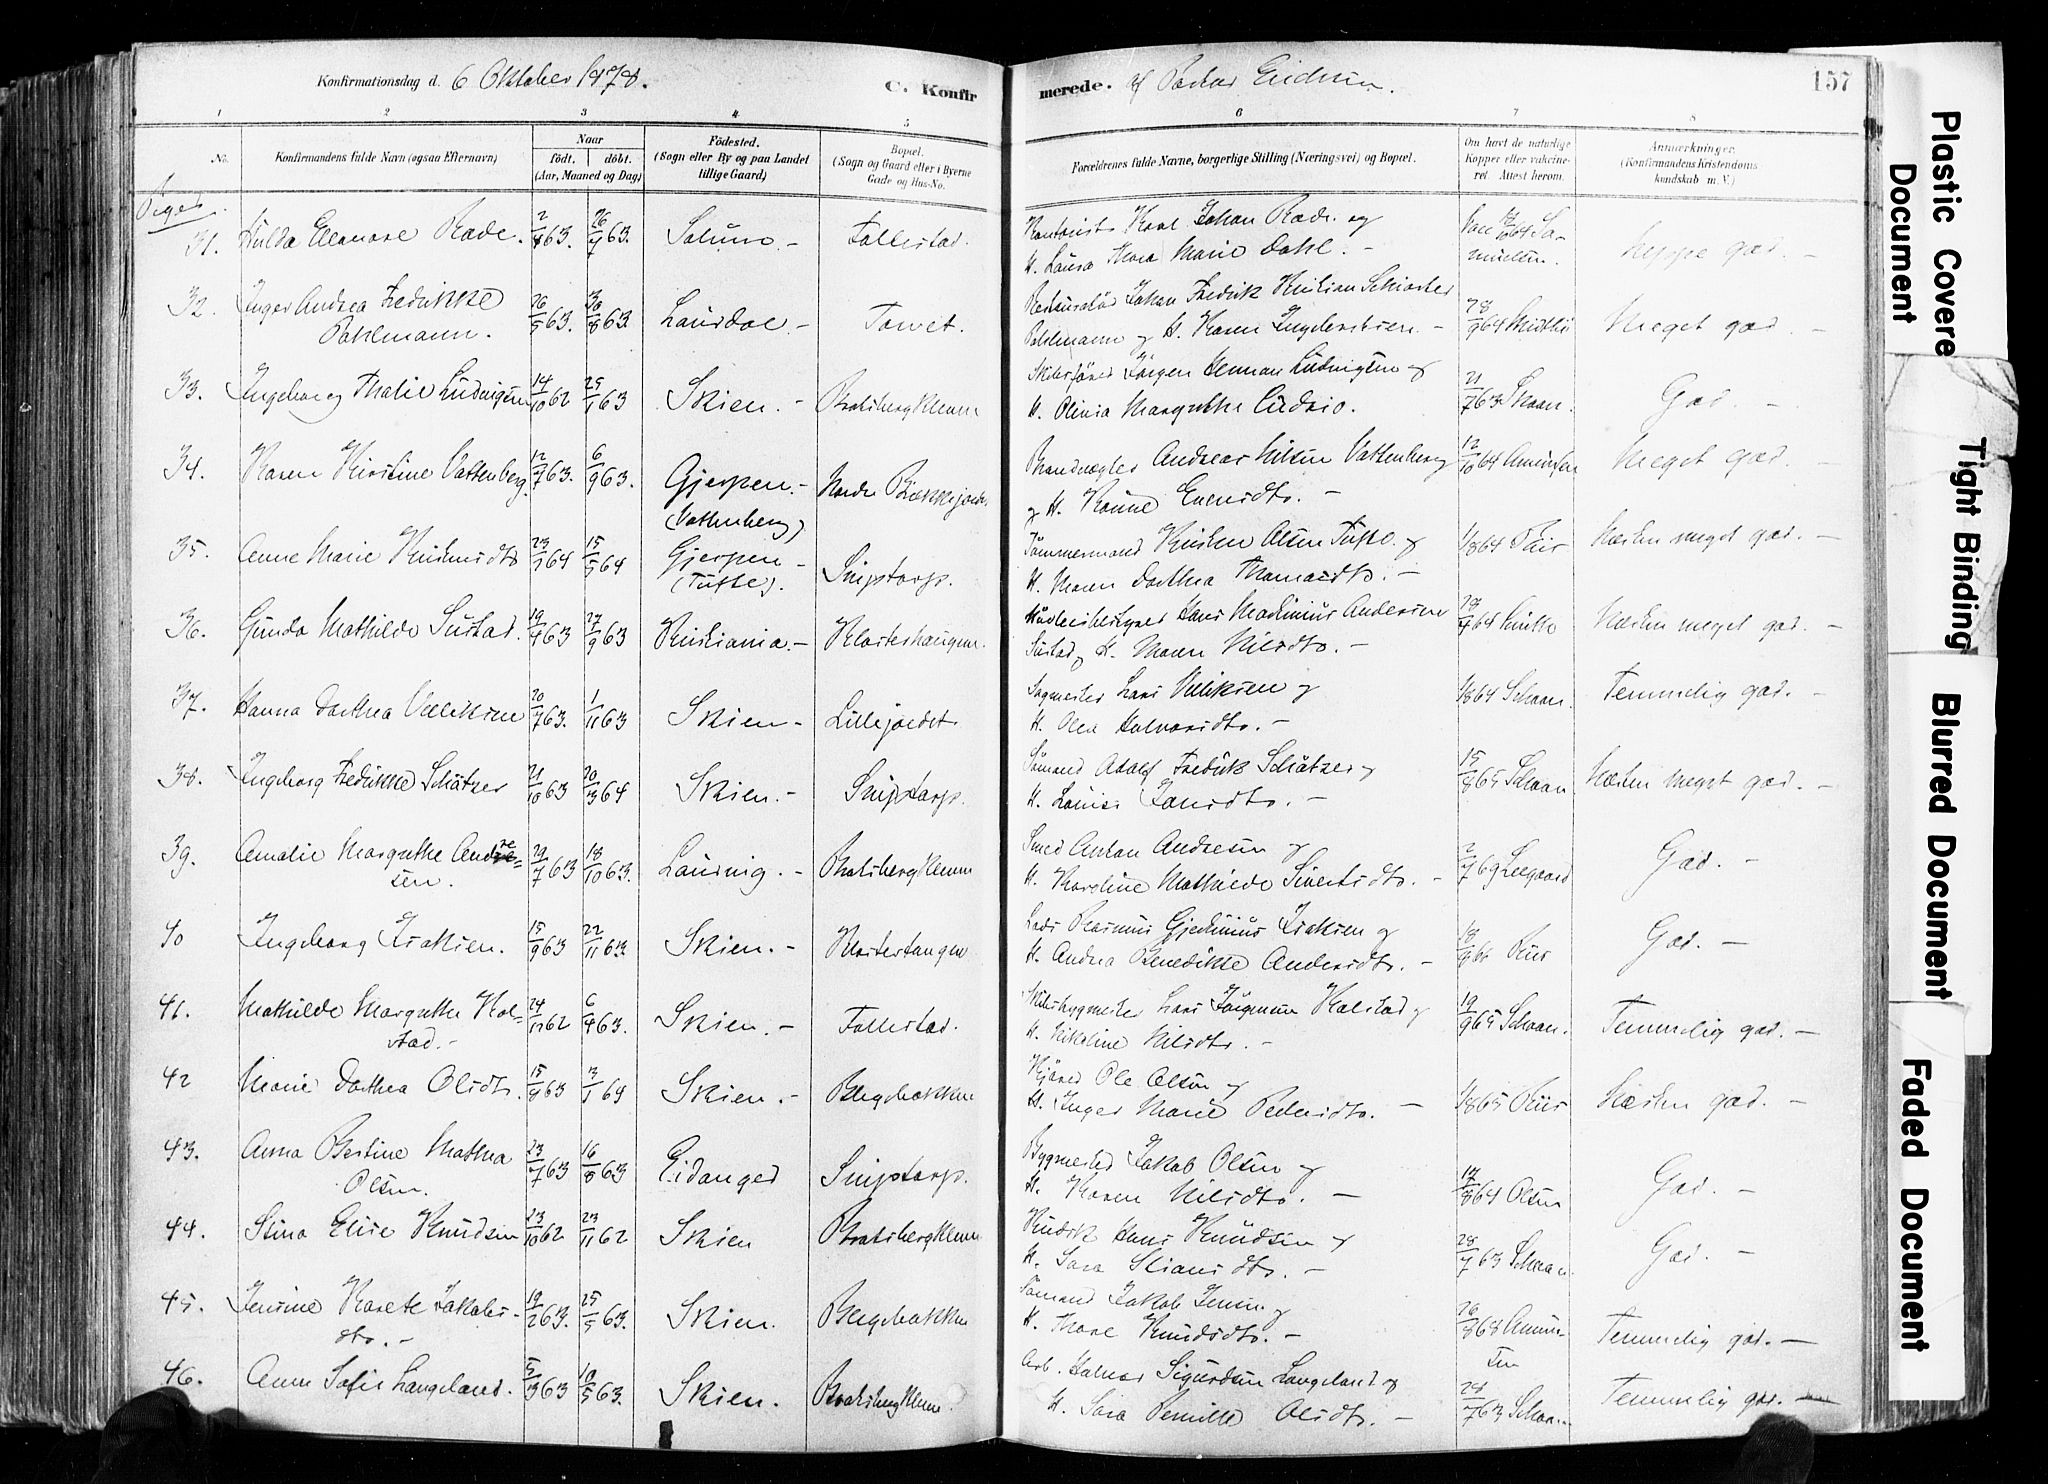 Konfirmationsdag d. 6 Oktober 1878.
C. Konfir
merede. af Pastor Eriksen.
157
1 2 3 4 5 6 7 8
No.
Konfirmandens fulde Navn (ogsaa Efternavn)
Naar
födt. döbt.
(Aar, Maaned og Dag)
Födested.
(Sogn eller By og paa Landet
tillige Gaard)
Bopæl.
(Sogn og Gaard eller i Byerne
Gade og Hus-No.
Forældrenes fulde Navne, borgerlige Stilling (Næringsvei) og Bopæl.
Om havt de naturlige
Kopper eller vakcine-
ret. Attest herom.
Anmærkninger.
(Konfirmandens Kristendoms
kundskab m. V.)
Piger.
31. Hulda Eleonore Rode. 2/4 63. 26/7 63. Solum. - Follestad.
Kontorist Karl Johan Rode og
H. Laura Thora Marie Dahl. -
Meget god. -
32. Inger Andrea Fredrikke
Pahlmann. 26/5 63. 30/8 63. Laurdal. -
Restauratør Johan Fredrik Kristian
Pahlmann og H. Karen Ingebretsen. -
Meget god. -
33. Ingeborg Thalie Ludvigsen 14/10 62 25/1 63 Skien. - Bratsbergkleven
Skibsfører Jörgen Herman Ludvigsen og
H. Olivia Margrethe
21/7 63 Schaan.
God. -
34. Karen Kirstine Vattenberg. 12/7 63. 6/9 63. Gjerpen. -
(Vattenberg) Nordre
Brandvægter Andreas Nilsen Vattenberg
og H. Evensdtr. -
12/10 64 Amundsen
Meget god.
35. Anne Marie Kristensdtr 23/1 64 15/5 64 Gjerpen -
(Tufte). Sniptorp.
Tömmermand Kristen Olsen Tufte og
H. Maren Dorthea Thomasdtr. -
1/8 64
Næsten meget god. -
36. Gunda Mathilde Sustad. 19/4 63 27/9 63 Kristiania. - Klosterhaugen.
Hans Maximius Andersen
Sustad og H. Maren Nilsdtr. -
Næsten meget god. -
37. Hanna Dorthea Villiksen 20/7 63. 1/11 63 Skien - Lillejordet
Sagmester Lars Villiksen og
H. Olea Halvorsdtr. -
1/8 64 Schaan.
Temmelig god. -
38. Ingeborg Fredrikke Schätzer 21/10 63 20/3 64 Skien. - Sniptorp.
Sömand Adolf Fredrik Schätzer og
H. Louise Jansdtr. -
15/8 65 Schaan
Næsten meget god. -
39. Amalie Margrethe Andre-
sen. 29/7 63 18/10 63. Laurvig. - Bratsbergkleven
Smed Anton Andresen og
H. Karoline Mathilde Sivertsdtr. -
2/7 69 Leegaard
God. -
40 Ingeborg Isaksen. 15/9 63 22/11 63. Skien. - Klostertangen
Lods Rasmus Gjedinius Isaksen og
H. Andrea Benedikte Andersdtr. -
18/9 66 Riis
God. -
41. Mathilde Margrethe Kol-
stad. - 24/12 62 6/4 63. Skien. - Follestad.
Skibsbygmester Lars Jörgensen Kolstad og
H. Nikoline Nilsdtr. -
19/9 65 Schaan.
Temmelig god. -
42 Marie Dorthea Olsdtr. 15/8 63 3/1 64 Skien. - Bergsbakken
Kjörer Ole Olsen og
H. Inger Marie Pedersdtr. -
1/8 65 Riis
Næsten god. -
43. Anna Bertine Mathea
Olsen. 23/7 63 16/8 63 Eidanger Sniptorp.
Bygmester Jakob Olsen og
H. Karen Nilsdtr. -
17/8 64 Olsen
God. -
44. Stina Elise Knudsen 23/10 62 23/11 62 Skien Bratsbergkleven
Hans Knudsen og
H. Sara Stiansdtr. -
28/7 63 Schaan.
God. -
45. Jensine Karete Jakobs-
dtr. - 19/2 63. 25/5 63. Skien. Bergsbakken
Sömand Jakob Jensen og
H. Thore Knudsdtr. -
26/8 68 Amund-
sen
Temmelig god. -
46. Anne Sofie Langeland. 5/3 63 10/5 63. Skien. Bratsbergkleven.
Arb. Halvor Sigurdsen Langeland og
H. Sara Pernille Olsdtr. -
28/7 63 Schaan.
Temmelig god. -
Plastic Covere
Document
Tight Binding
Blurred Document
Faded Document